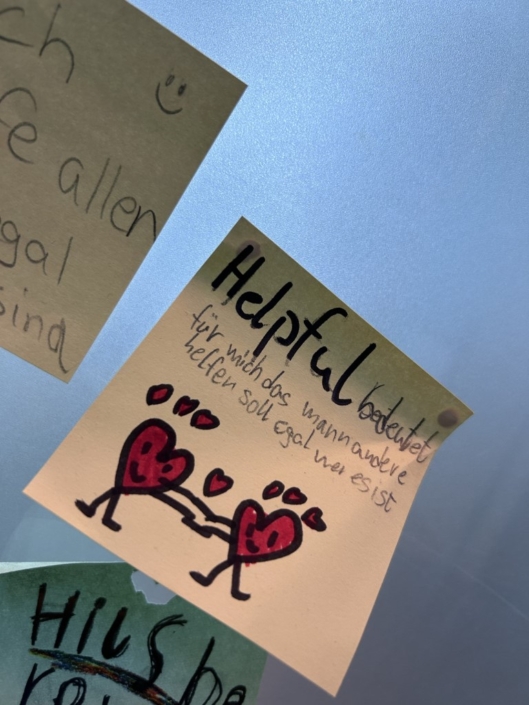 ch
fe allen
egal
sind
Helpful bedeutet
für mich das mann andere
helfen soll egal wer es ist